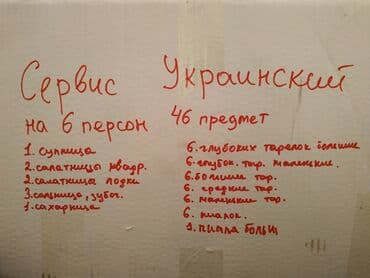 Сервис Украинский
на 6 персон 46 предмет
1. супница
2. салатницы квадр.
2. салатницы лодки
3. сольница, зубоч.
1. сахарница
6. глубоких тарелок большие
6. глубок. тар. маленькие.
6. большие тар.
6. средние тар.
6. маленькие тар.
6. пиалок.
1. пиала больш